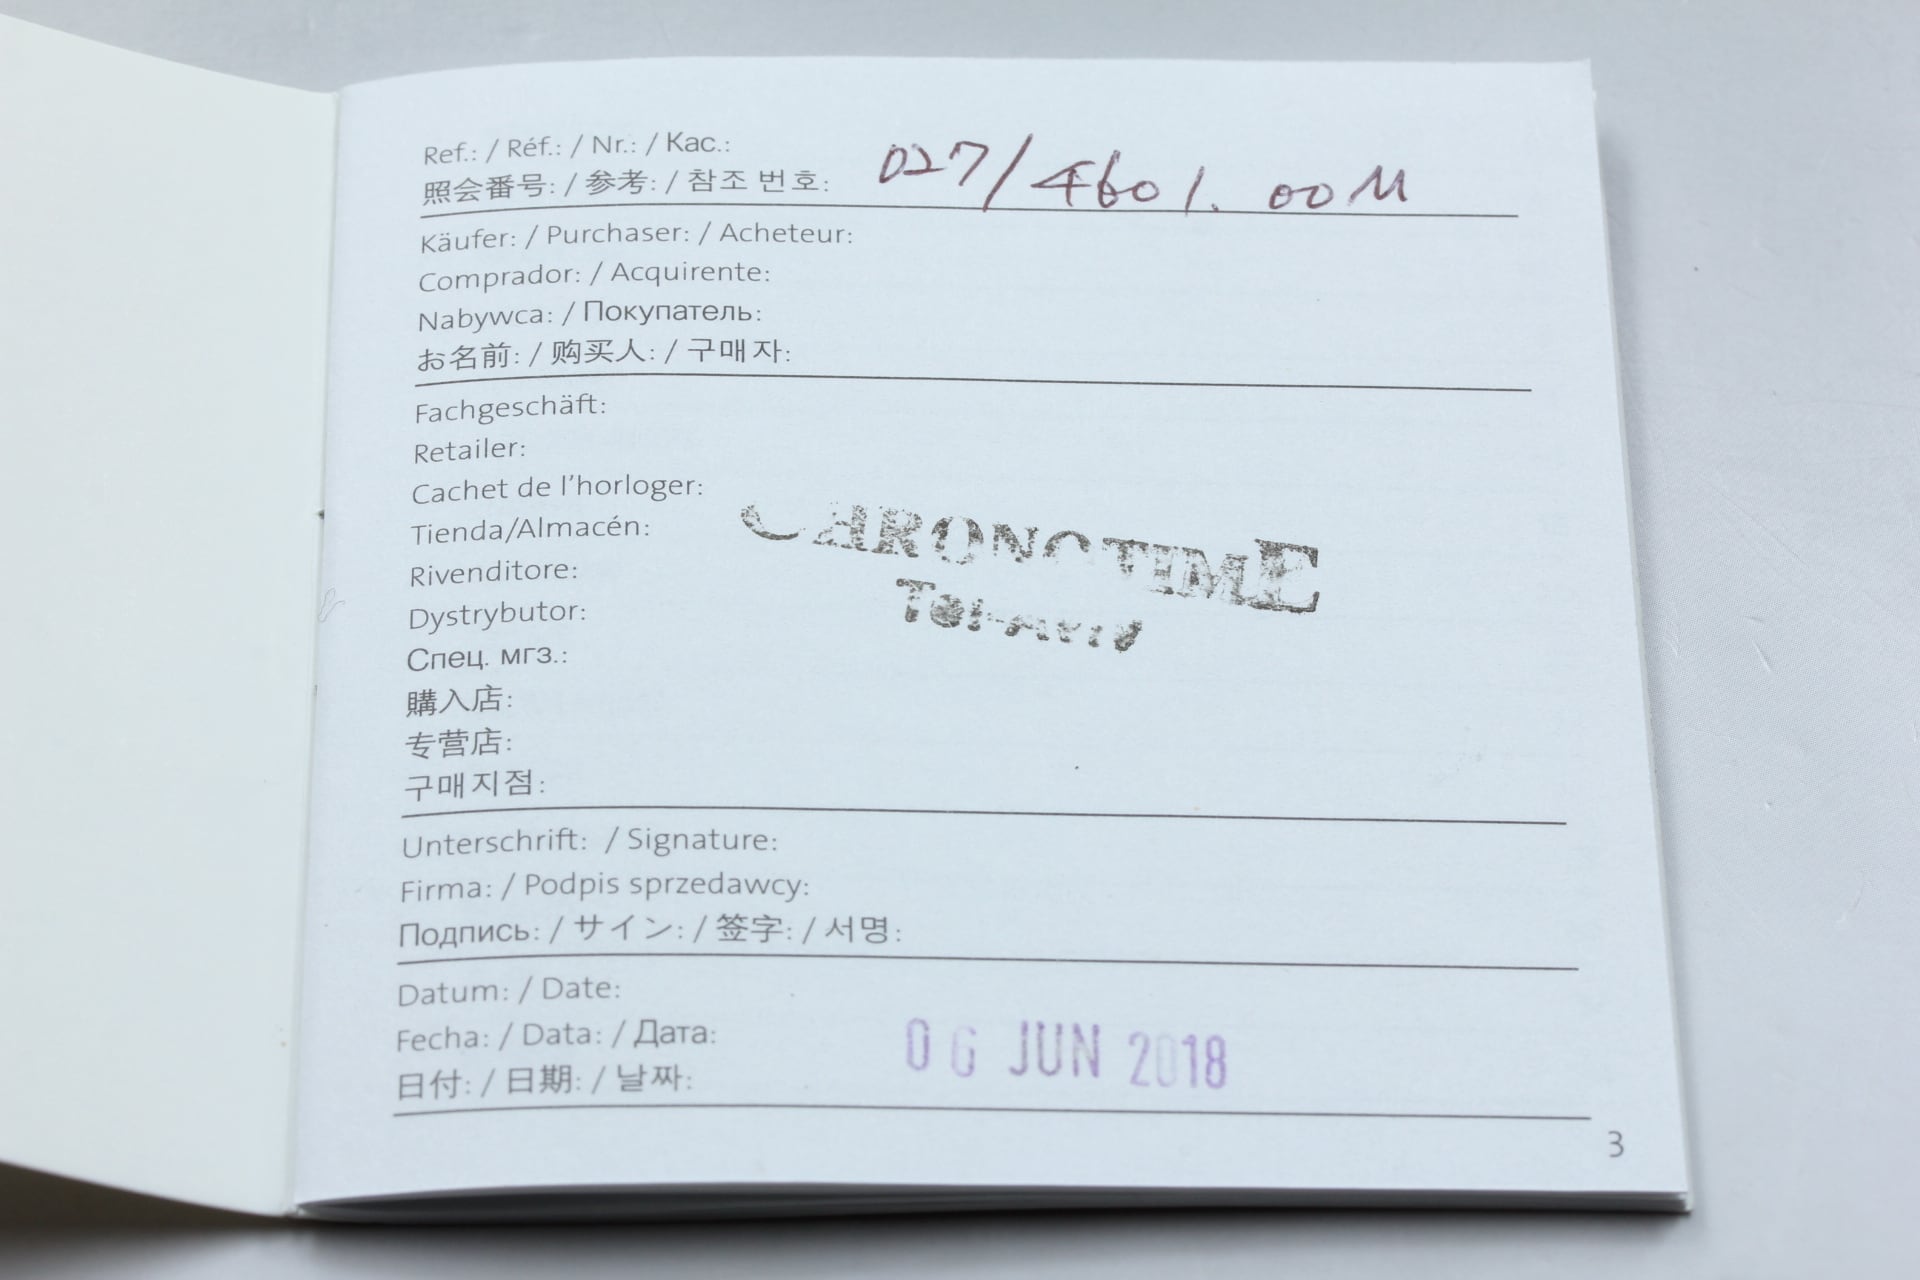 Ref.: / Réf.: / Nr.: / Kac.:
照会番号: / 参考: / 참조 번호: 027/4601.00M
Käufer: / Purchaser: / Acheteur:
Comprador: / Acquirente:
Nabywca: / Покупатель:
お名前: / 购买人: / 구매자:
Fachgeschäft:
Retailer:
Cachet de l'horloger:
Tienda/Almacén:
CHRONOTIME
Rivenditore:
Dystrybutor:
Tel-Aviv
Спец. мгз.:
購入店:
专营店:
구매지점:
Unterschrift: / Signature:
Firma: / Podpis sprzedawcy:
Подпись: / サイン: / 签字: / 서명:
Datum: / Date:
Fecha: / Data: / Дата:
06 JUN 2018
日付: / 日期: / 날짜:
3